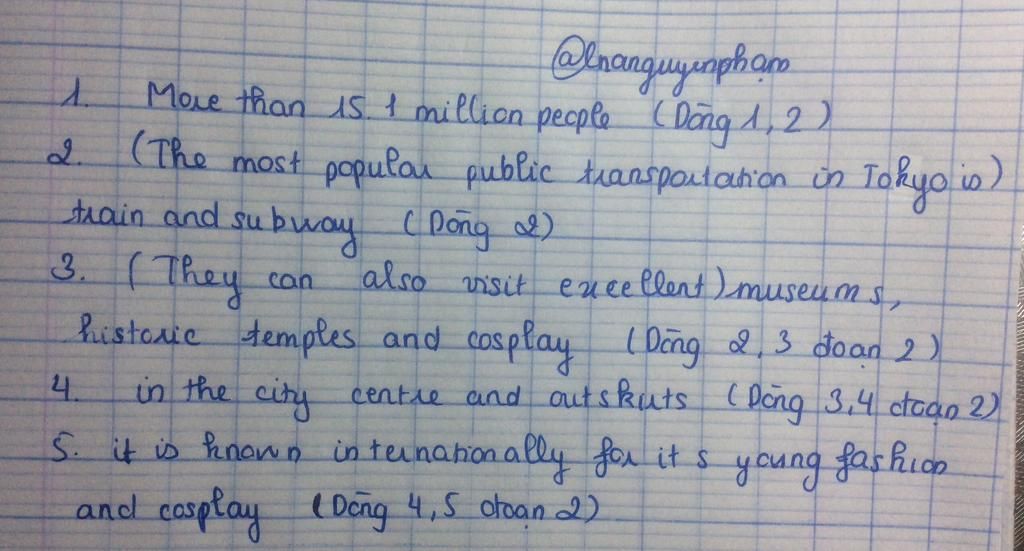 @lnanguyenpham
1. More than 15.1 million people (Dòng 1, 2)
2. (The most popular public transportation in Tokyo is)
train and subway (Dòng 2)
3. (They can also visit excellent) museums,
historic temples and cosplay (Dòng 2, 3 đoạn 2)
4. in the city centre and outskirts (Dòng 3,4 đoạn 2)
5. it is known internationally for it s young fashion
and cosplay (Dòng 4, 5 đoạn 2)